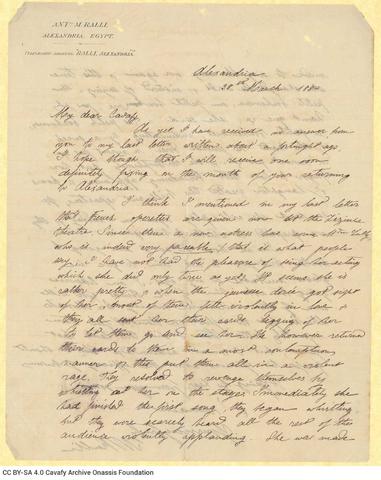 ANTY M. RALLI.
ALEXANDRIA, EGYPT.
TELEGRAPHIC ADDRESS: RALLI, ALEXANDRIA.
Alexandria
28th March 188
My dear Cavafy
As yet I have received no answer from
you to my last letter written about a fortnight ago.
I hope though that I will receive one soon
definitely fixing on the month of your returning
to Alexandria.
I think I mentioned in my last letter
that french operettes are given now at the Zizinia
theatre. Since then a new actress has come Mme
who is indeed very passable (that is what people
say, I have not had the pleasure of seeing her acting
which she did only twice as yet). It seems she is
rather pretty & when the jeunesse dorée got sight
of her, most of them fell violently in love &
they all sent her their cards begging of her
to let them go and see her. She however returned
their cards to them in a most contemptuous
manner & this put them all in a violent
rage. They resolved to revenge themselves by
whistling at her on the stage. Immediately she
had finished the first song they began whistling
but they were scarcely heard all the rest of the
audience violently applauding. She was made
CC BY-SA 4.0 Cavafy Archive Onassis Foundation